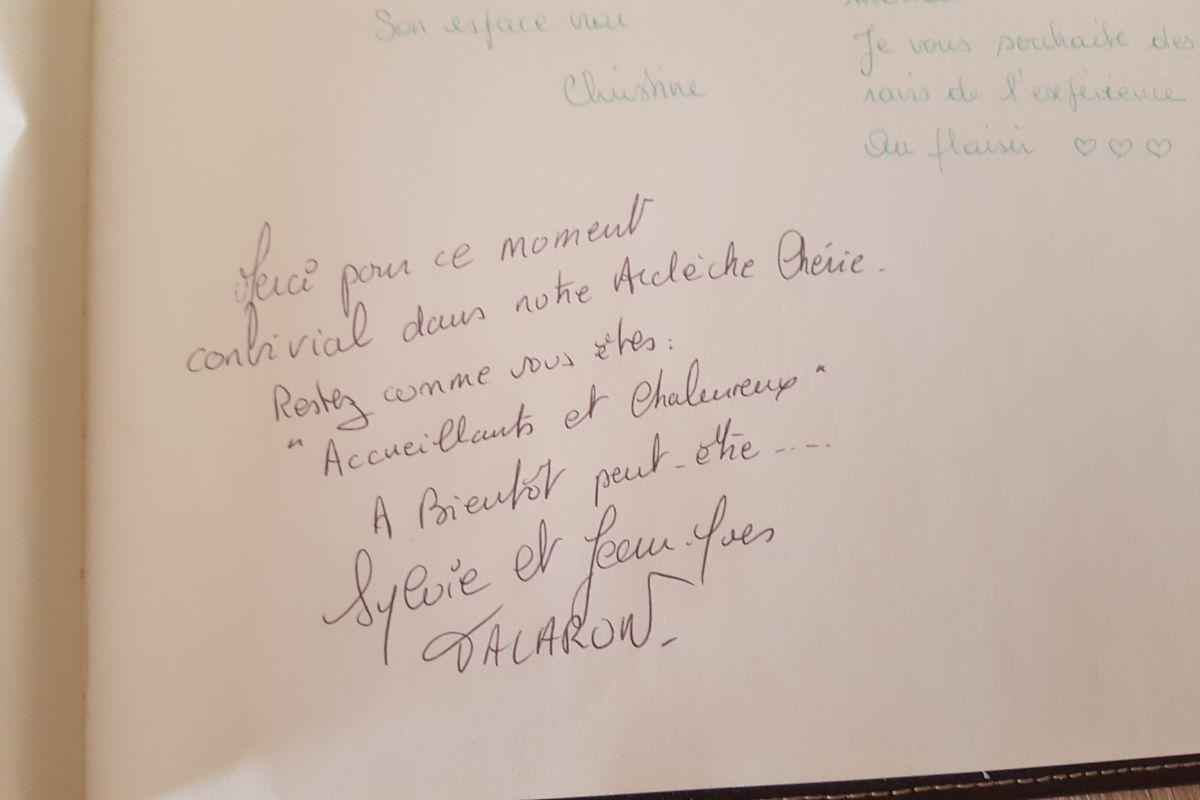 Son espace vrai
Christine
Je vous souhaite des
rais de l'expérience
Au plaisir ♡♡♡
Merci pour ce moment
convivial dans notre Ardèche Chérie.
Restez comme vous êtes:
"Accueillants et Chaleureux"
A Bientôt peut-être .....
Sylvie et Jean-Yves
TALARON